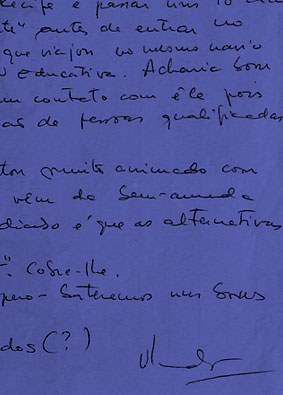 Recife e passar uns 10
te" antes de entrar no
que viajou no mesmo navio
educativa. Acharia bom
um contato com êle pois
as de pessoas qualificadas
tou muito animado com
vêm da Bem-amada
diando é que as alternativas
". Cobre-lhe.
pero - bateremos uns bons
dos (?)